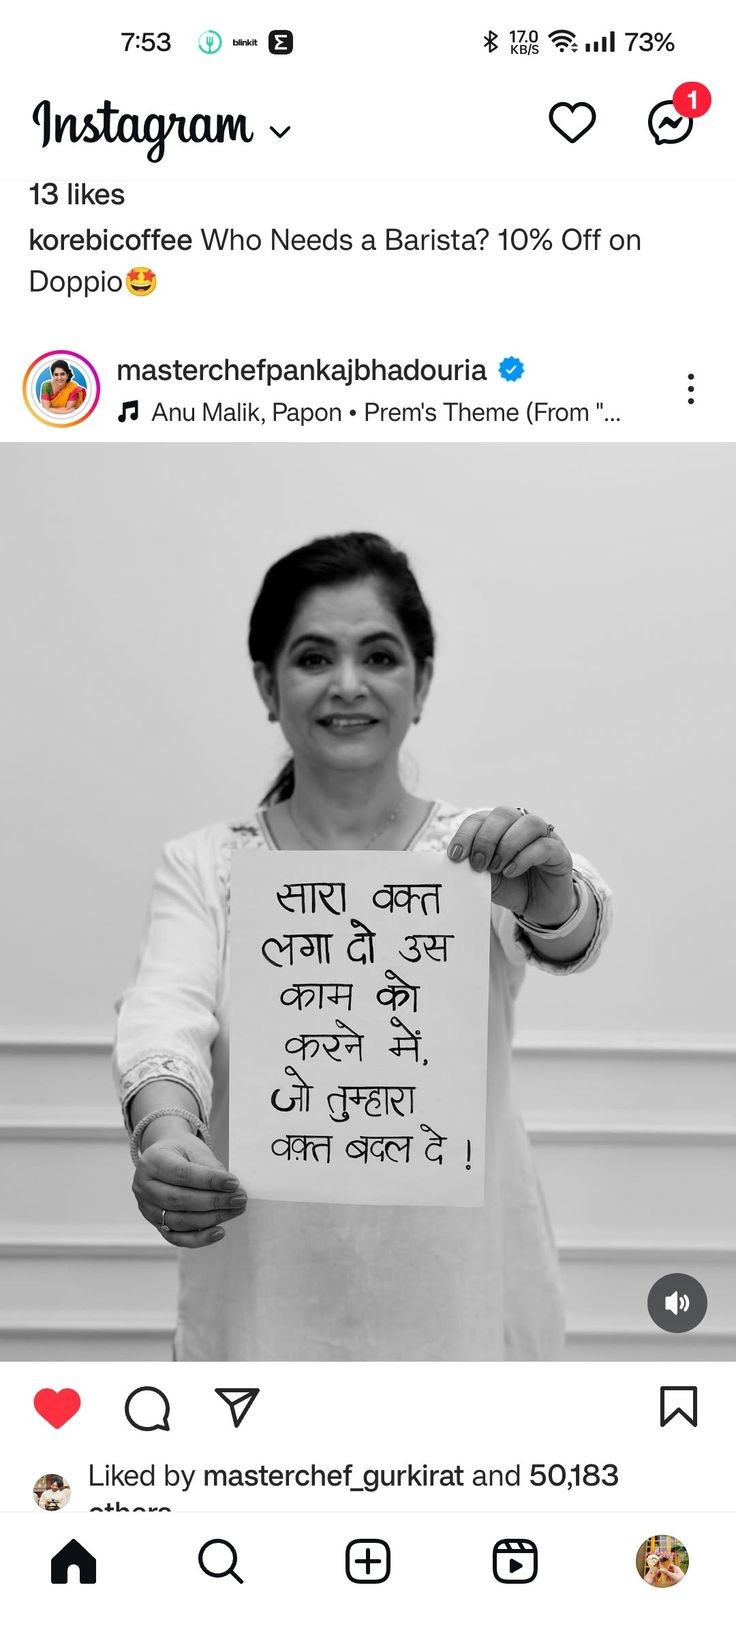 7:53 blinkit Σ 17.0 KB/S 73%
Instagram 1
13 likes
korebicoffee Who Needs a Barista? 10% Off on
Doppio🤩
masterchefpankajbhadouria
Anu Malik, Papon • Prem's Theme (From "...
सारा वक्त
लगा दो उस
काम को
करने में,
जो तुम्हारा
वक़्त बदल दे !
Liked by masterchef_gurkirat and 50,183
others